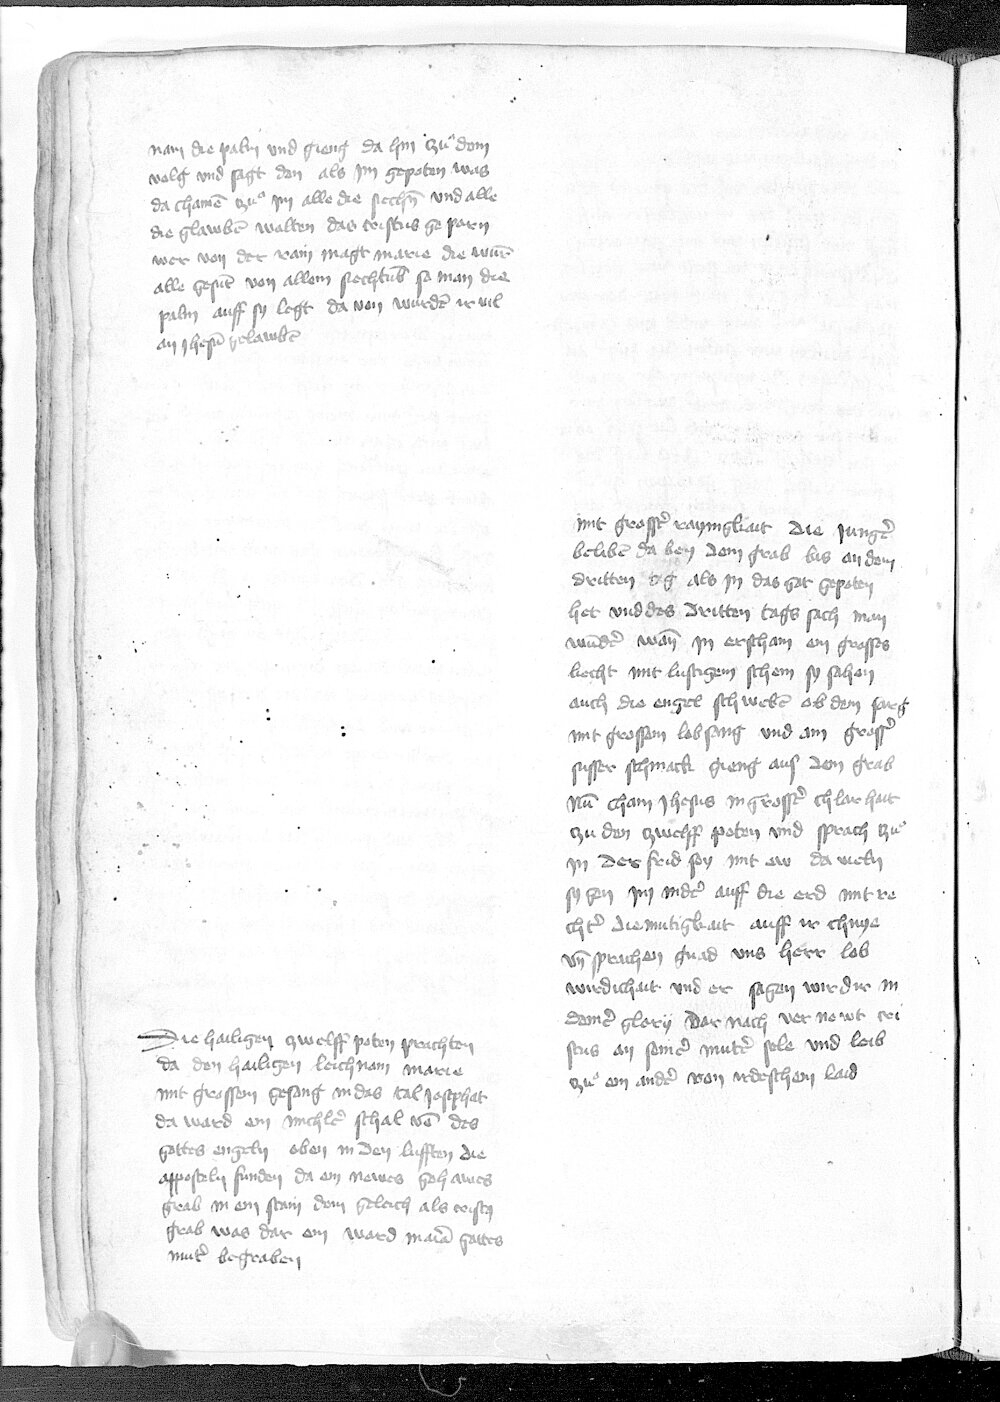 nam die palm und gieng da hin zuͦ dem
volg vnd sagt den als im gepoten was
da chamē zuͦ im alle die siechn̄ und alle
die glawbē wolten das cristus geporn
wer von der rain magt marie die wur̄
alle gesūt von allem siechtūb so man die
palm auff sy legt da von wurdē ir vil
an jhesū gelawbē
Die hailigen zwelff poten prachten
da den hailigen leichnam marie
mit grossem gesang in das tal josephat
da ward ein michler̄ schal vō des
gottes engeln oben in den lufften die
apposteln funden da ein newes gehawes
grab in ein stain dem geleich als cristy
grab was dar ein ward maria gottes
muter̄ begraben
mit grosser̄ raynigkait Die junger̄
belibē da bey dem grab bis an dem
dritten tag als in das got gepoten
het und des dritten tags sach man
wūder̄ wan̄ in erscham ein grosses
liecht mit lustigem schein sy sahen
auch die engel schwebē ob dem sarg
mit grossem lobsang und ain grosser̄
susser schmack gieng aus dem grab
Nū cham jhesus in grosser̄ chlarhait
zu den zwelff poten vnd sprach zuͦ
in Der frid sey mit ew da vieln
sy gen im nider̄ auff die erd mit re
chter̄ diemutigkait auff ir chnye
vn̄ sprachen gnad uns herr lob
wirdichait und er sagen wir dir in
deiner̄ glorij Dar nach vernewt cri
stus an seiner̄ muter̄ sele und leib
zuͦ ein ander̄ von irdeschem laid